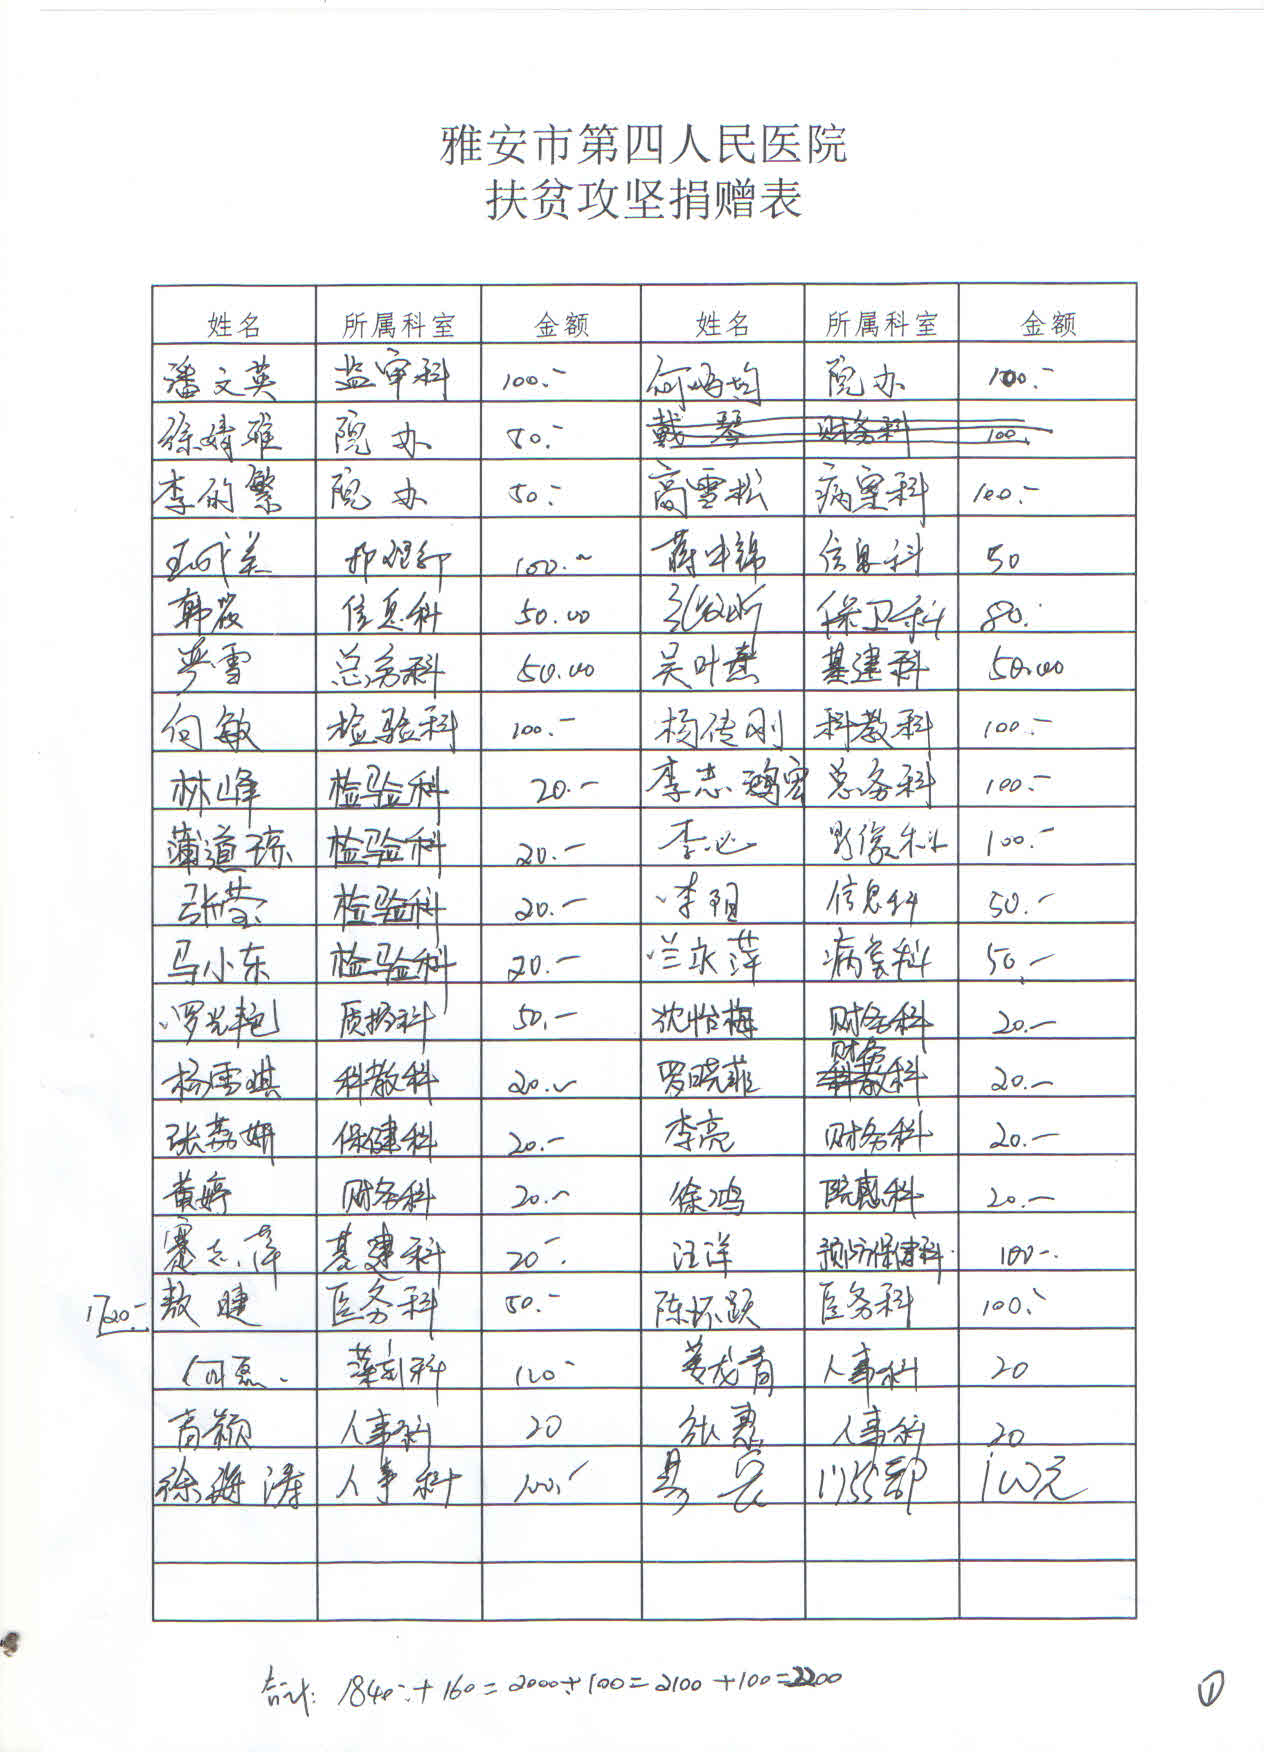 雅安市第四人民医院
扶贫攻坚捐赠表
姓名 所属科室 金额 姓名 所属科室 金额
潘文英 监审科 100.- 何 均 院办 100.-
徐婧雅 院办 50.- 戴琴 财务科 100.
李的繁 院办 50.- 高雪松 病案科 100.-
王 美 护理部 100.- 蒋中锦 信息科 50
韩筱 信息科 50.00 保卫科 80.
岑雪 总务科 50.00 吴叶熹 基建科 50.00
何敏 检验科 100.- 杨传刚 科教科 100.-
林峰 检验科 20.- 李志 宏 总务科 100.-
蒲道琼 检验科 20.- 李 影像科 100.-
张莹 检验科 20.- 李阳 信息科 50.-
马小东 检验科 20.- 兰永萍 病案科 50.-
罗光艳 质控科 50.- 沈怡梅 财务科 20.-
财务
杨雪琪 科教科 20.- 罗晓菲 科教科 20.-
张荔妍 保健科 20.- 李亮 财务科 20.-
黄婷 财务科 20.- 徐鸿 院感科 20.-
蹇志萍 基建科 20.- 汪洋 预防保健科 100-.
1720.- 敖睫 医务科 50.- 陈怀跃 医务科 100.-
何磊 药剂科 100- 姜龙青 人事科 20
高颖 人事科 20 张惠 人事科 20
徐海涛 人事科 100.- 易 门诊部 100元
合计: 1840.-+160=2000+100=2100+100=2200
①